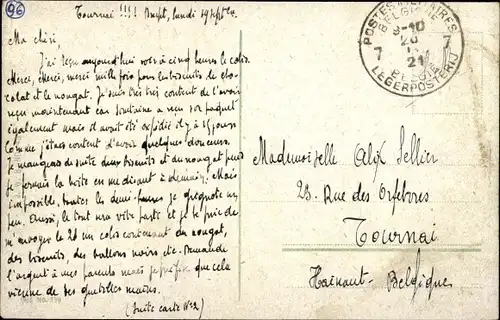 96
Tournai !!!! Brupt, lundi 19 sept 21
Ma chérie,
J'ai reçu aujourd'hui soir à cinq heures le colis.
Merci, Merci, merci mille fois pour les biscuits de cho-
colat et le nougat. Je suis très très content de l'avoir
reçu maintenant car Fontaine a reçu son paquet
également mais il avait été expédié il y a 15 jours
Comme j'étais content d'avoir quelques douceurs.
Je mangeais de suite deux biscuits et du nougat puis
je fermais la boîte en me disant à demain; Mais
impossible, toutes les demi-heures je grignote un
peu. Aussi, le tout ira vite parti et je te prie de
m'envoyer le 26 un colis contenant du nougat,
des biscuits, des ballons noirs etc. Demande
l'argent à mes parents mais je préfère que cela
vienne de ses gentilles mains.
(Suite carte No 2)
POSTES MILITAIRES
BELGIQUE
7 8-10 7
20
21
BELGIE
LEGERPOSTERIJ
Mademoiselle Alix Sellier
28. Rue des Orfèvres
Tournai
Hainaut - Belgique